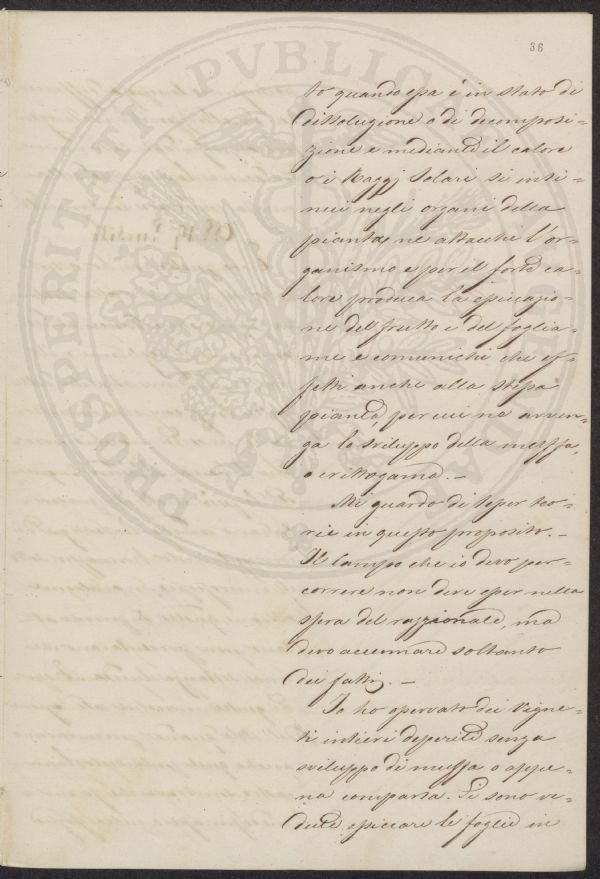 36
to quando essa è in stato di
dissoluzione o di decomposi=
zione e mediante il calore
o i Raggj Solari si insi=
nui negli organi della
pianta, ne attacchi l'or=
ganismo e per il forte ca=
lore produca la essicazio=
ne del frutto e del foglia=
me e comunichi che ef=
fetti anche alla stessa
pianta, per cui ne avven=
ga lo sviluppo della muffa,
o crittogama. –
Mi guardo di tesser teo=
rie in questo proposito. –
Il campo che io devo per=
correre non deve esser nella
sfera del razzionale, ma
devo accennare soltanto
dei fatti. –
Io ho osservato dei Vigne=
ti intieri deperire senza
sviluppo di muffa o appe=
na comparsa. Si sono ve=
dute essiccare le foglie in
PROSPERITATI PVBLICAE